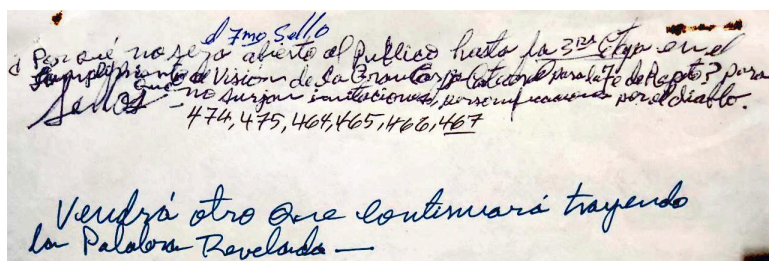 el 7mo Sello
¿Por qué no será abierto al publico hasta la 3ra Etapa en el
Cumplimiento de Vision de la Gran Carpa Catedral para la Fe de Rapto? para
Sellos que no surjan imitaciones, personificaciones por el diablo.
474, 475, 464, 465, 466, 467
Vendrá otro que continuará trayendo
la Palabra Revelada —